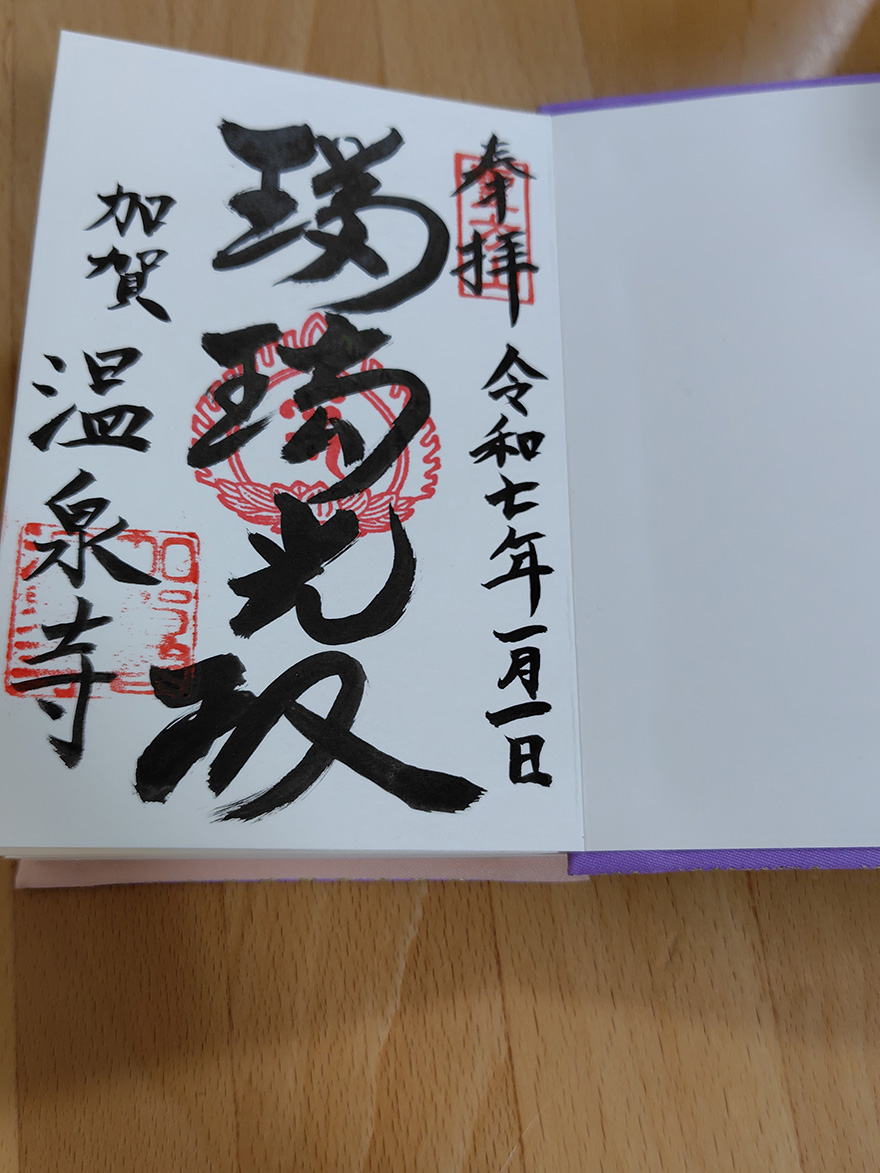 奉拝 令和七年一月一日
瑠璃光殿
加賀 温泉寺